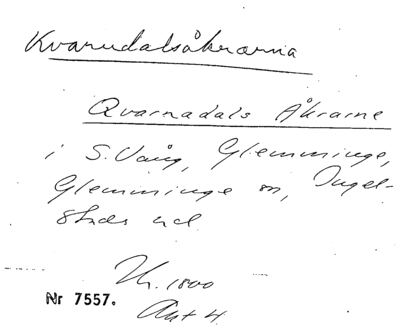 Kvarndalsåkrarna
Qvarnadals Åkrarne
i S. Vång, Glemminge,
Glemminge sn, Ingel-
stads hd.
1800
Nr 7557.
Akt 4.